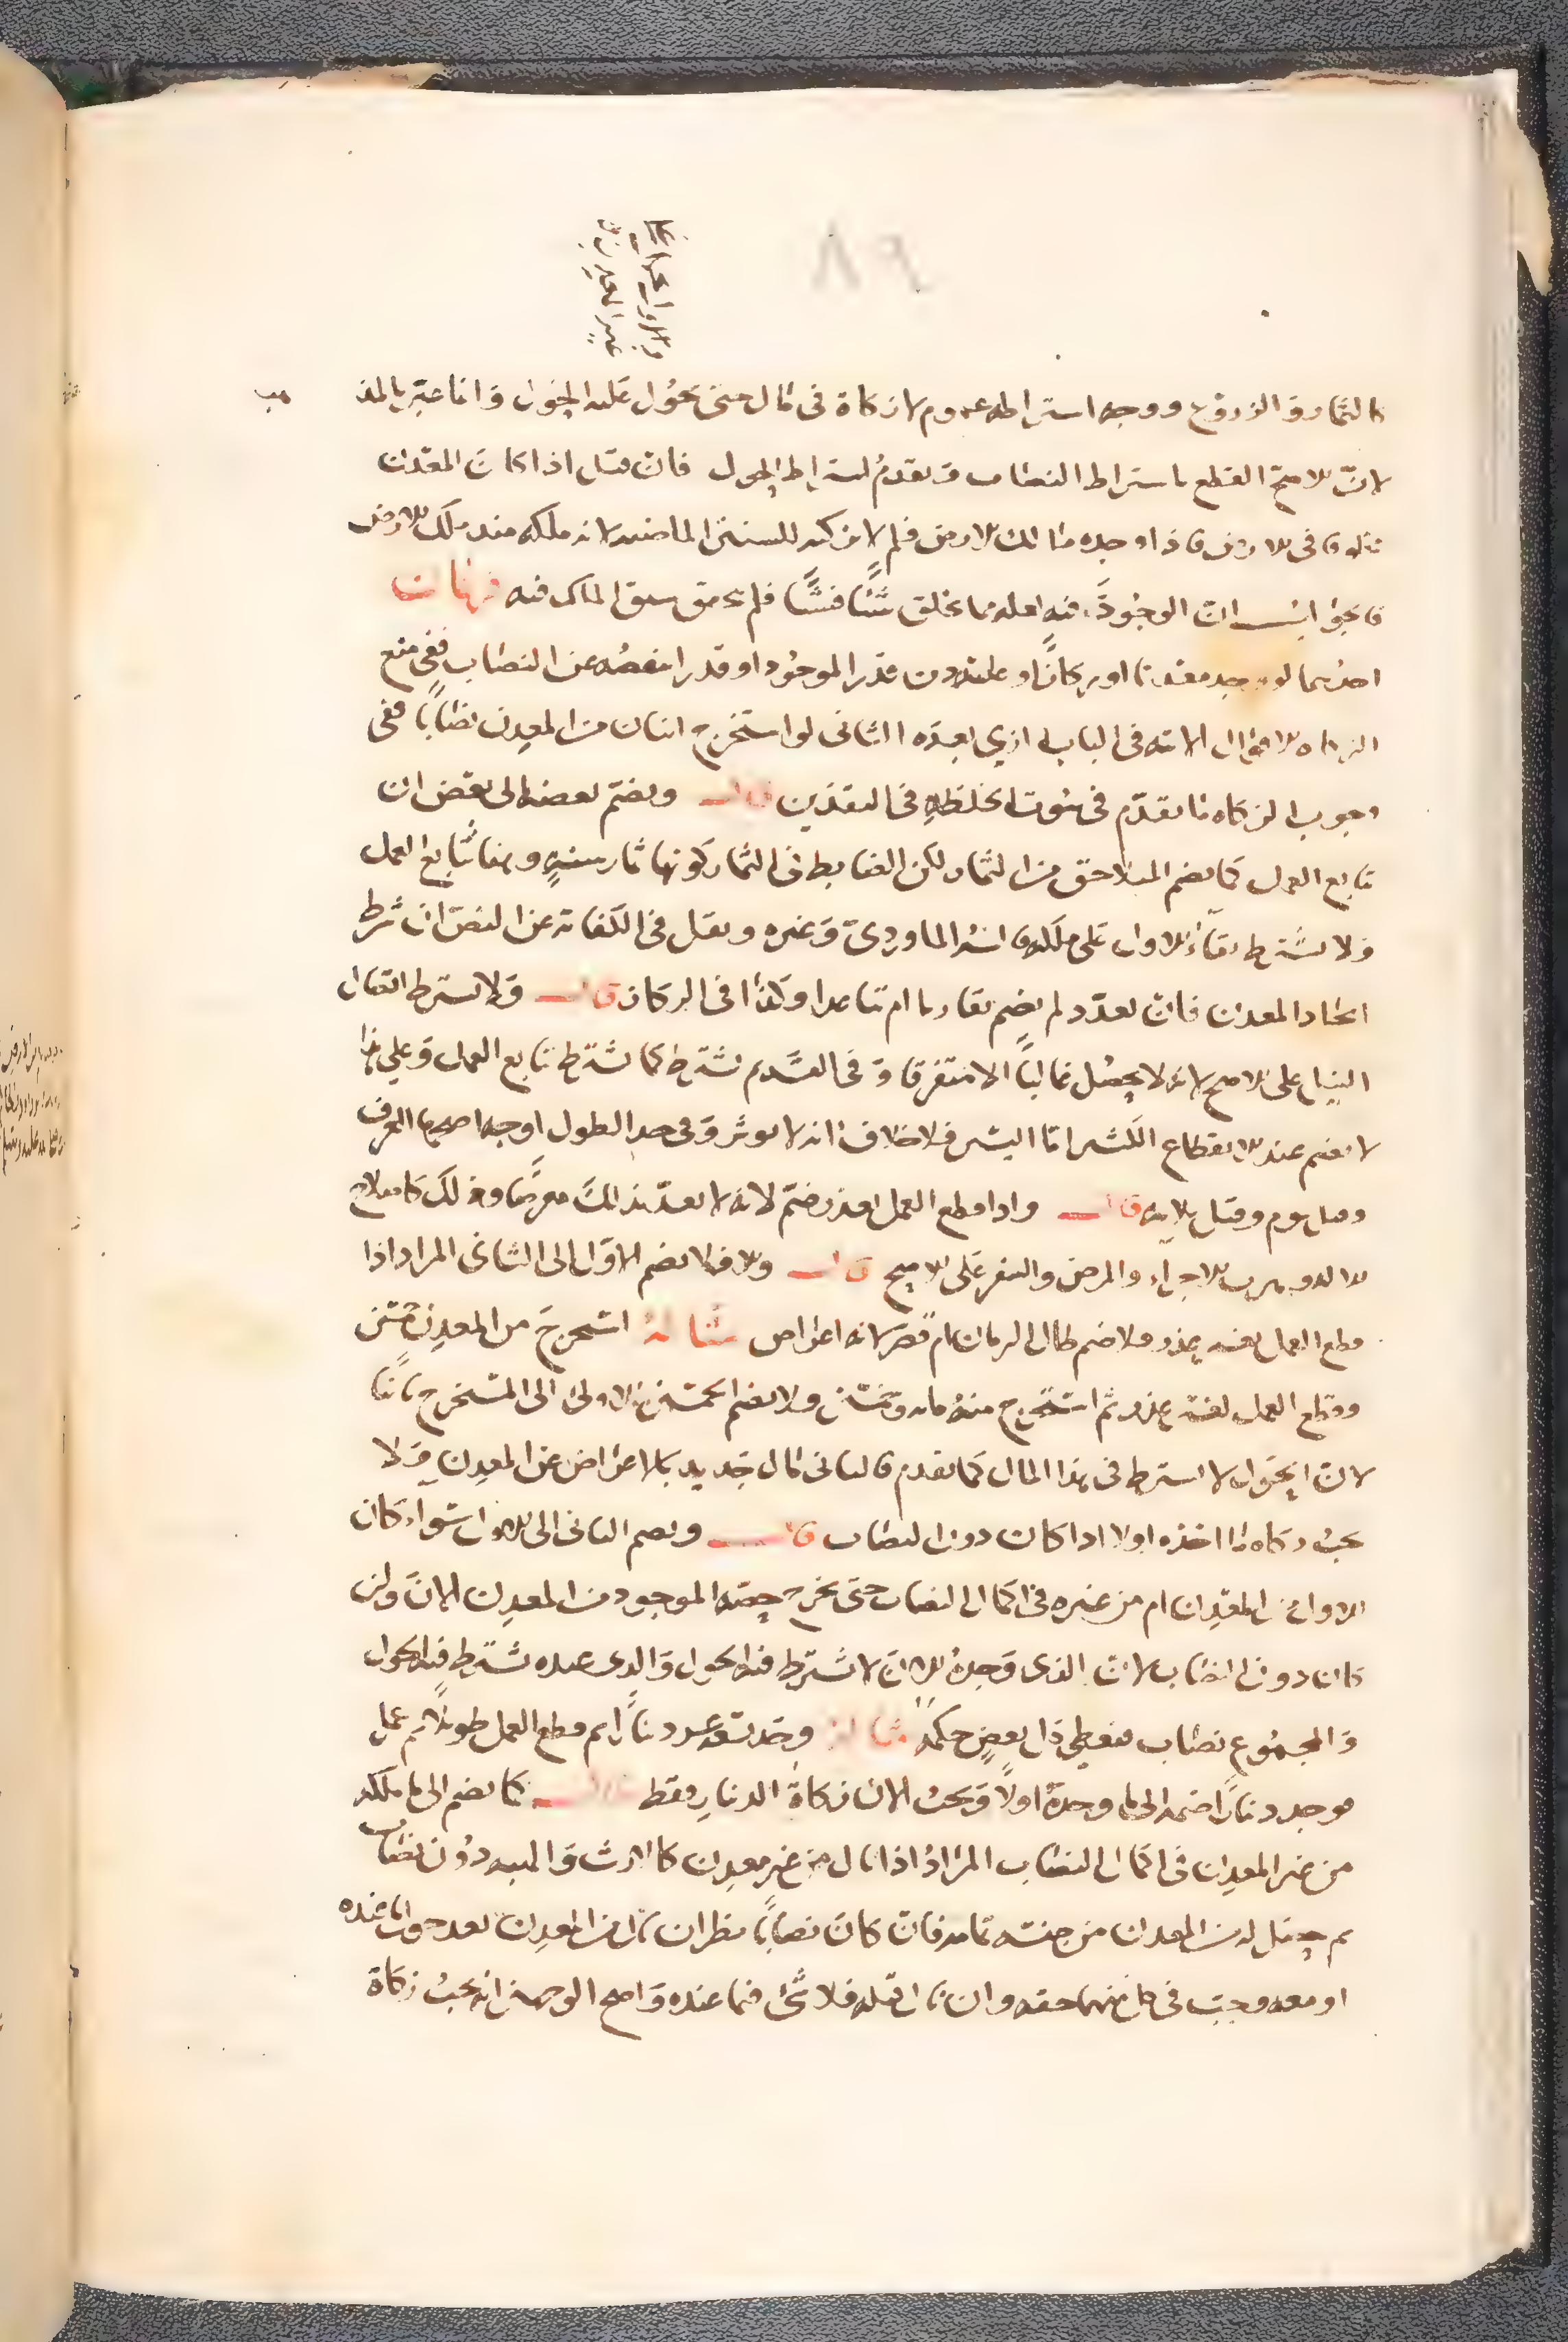 ٨٩
كالثمار والزروع ووجه اشتراطه عموم لا زكاة في مال حتى يحول عليه الحول وانما عبر بالمذ
هب
لان الاصح القطع باشتراط النصاب وتقدم اشتراط الحول فان قيل اذا كان المعدن
مخلوقا في الارض فاذا وجده مالك الارض فلم لا يزكيه للسنين الماضيه لانه ملكه منذ ملك الارض
فالجواب ان الموجود فيه لعله مما يخلق شيئا فشيئا فلم يتحقق سبق الملك فيه فرعان
احدهما لو وجد معدنا او ركازا وعليه دين قدر الموجود او قدرا ينقصه عن النصاب ففي منع
الزكاه الاقوال الاتيه في الباب الذي بعده الثاني لو استخرج اثنان من المعدن نصابا ففي
وجوب الزكاه ما تقدم في ثبوت الخلطه في النقدين قال ويضم بعضه الى بعض ان
تتابع العمل كما يضم المتلاحق من الثمار لكن الضابط في الثمار كونها ثمار سنة وهنا تتابع العمل
ولا يشترط بقاء الاول على ملكه قاله الماوردي وغيره ونقل في الكفاية عن النص ان شرط
اتحاد المعدن فان تعدد لم يضم تقاربا ام تباعدا وكذا في الركاز قال ولا يشترط اتصال
النيل على الاصح لانه لا يحصل غالبا الا متفرقا وفي القديم يشترط كما يشترط تتابع العمل وعلى هذا
لا يضم عند الانقطاع الكثير اما اليسير فلا خلاف انه لا يوثر وفي حد الطول اوجه اصحها العرف
وقيل يوم وقيل ثلاثه قال واذا قطع العمل لعذر ضم لانه لا يعد بذلك معرضا وذلك كاصلاح
الاله وهرب الاجراء والمرض والسفر على الاصح قال والا فلا يضم الاول الى الثاني المراد اذا
قطع العمل بغير عذر فلا ضم طال الزمان ام قصر لانه اعراض مثاله استخرج من المعدن خمسين
وقطع العمل لغير عذر ثم استخرج منه مايه وخمسين ولا يضم الخمسين الاولى الى المستخرج ثانيا
لان الحول لا يشترط في هذا المال كما تقدم فالثاني مال جديد بالاعراض عن المعدن ولا
يجب زكاه ما اخذه اولا اذا كان دون النصاب قال ويضم الثاني الى الاول سواء كان
الاول من المعدن ام من غيره في اكمال النصاب حتى يخرج حصه الموجود من المعدن الان وان
كان دون النصاب لان الذي وجده الان لا يشترط فيه الحول والذي عنده يشترط فيه الحول
والمجموع نصاب فيعطى كل بعض حكمه مثاله وجد تسعه عشر دينارا ثم قطع العمل طويلا ثم عمل
فوجد دينارا ضمه الى ما وجده اولا ويجب الان زكاة الدينار فقط قال كما يضم الى ما ملكه
من غير المعدن في اكمال النصاب المراد اذا نال من غير معدن كالارث والهبه دون نصاب
ثم حصل له من المعدن من جنسه تمامه فان كان نصابا نظر ان نال من المعدن بعد حول ما عنده
او معه وجب في كل منهما حقه وان نال قبله فلا شئ فيما عنده واصح الوجهين انه يجب زكاة